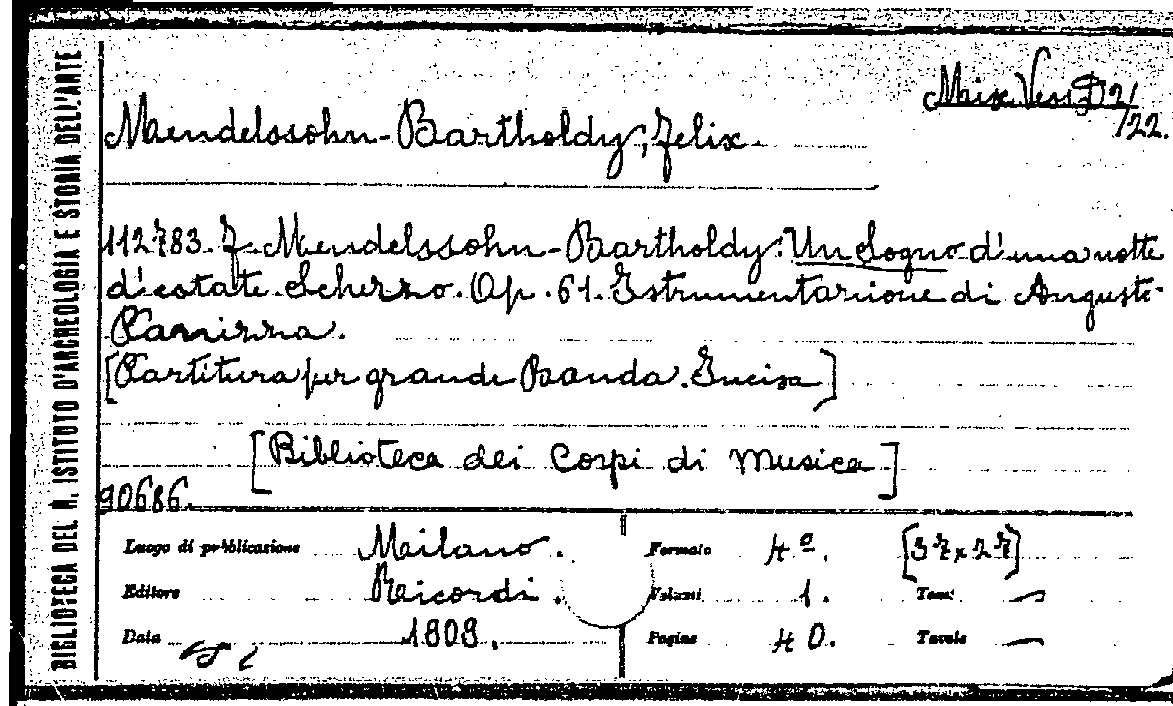 BIBLIOTECA DEL R. ISTITUTO D'ARCHEOLOGIA E STORIA DELL'ARTE
Mendelssohn-Bartholdy, Felix.
/22.
112783. F. Mendelssohn-Bartholdy: Un Sogno d'una notte
d'estate. Scherzo. Op. 61. Istrumentazione di Augusto
Vanizza.
[Partitura per grande Banda. Incisa]
[Biblioteca dei Corpi di Musica]
90686.
Luogo di pubblicazione Milano. Formato 4º. [37x27]
Editore Ricordi. Volumi 1. Tomi —
Data 1808. Pagine 40. Tavole —